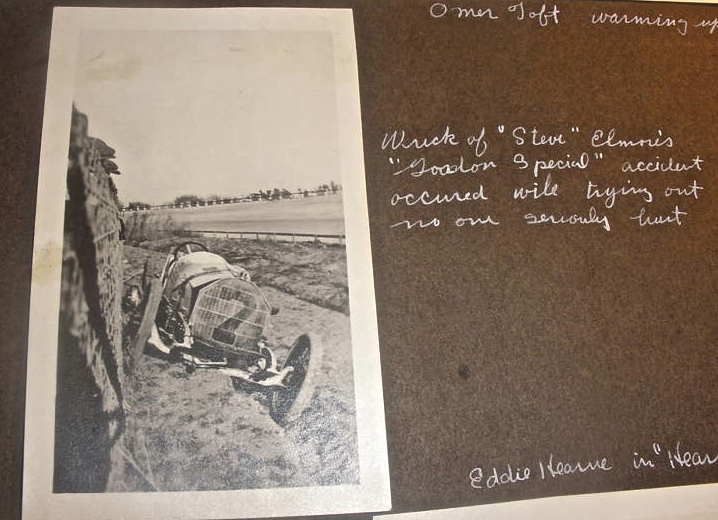 Omer Toft warming up
Wreck of "Steve" Elmore's
"Goodon Special" accident
occured wile trying out
no one seriously hurt
Eddie Hearne in "Hear